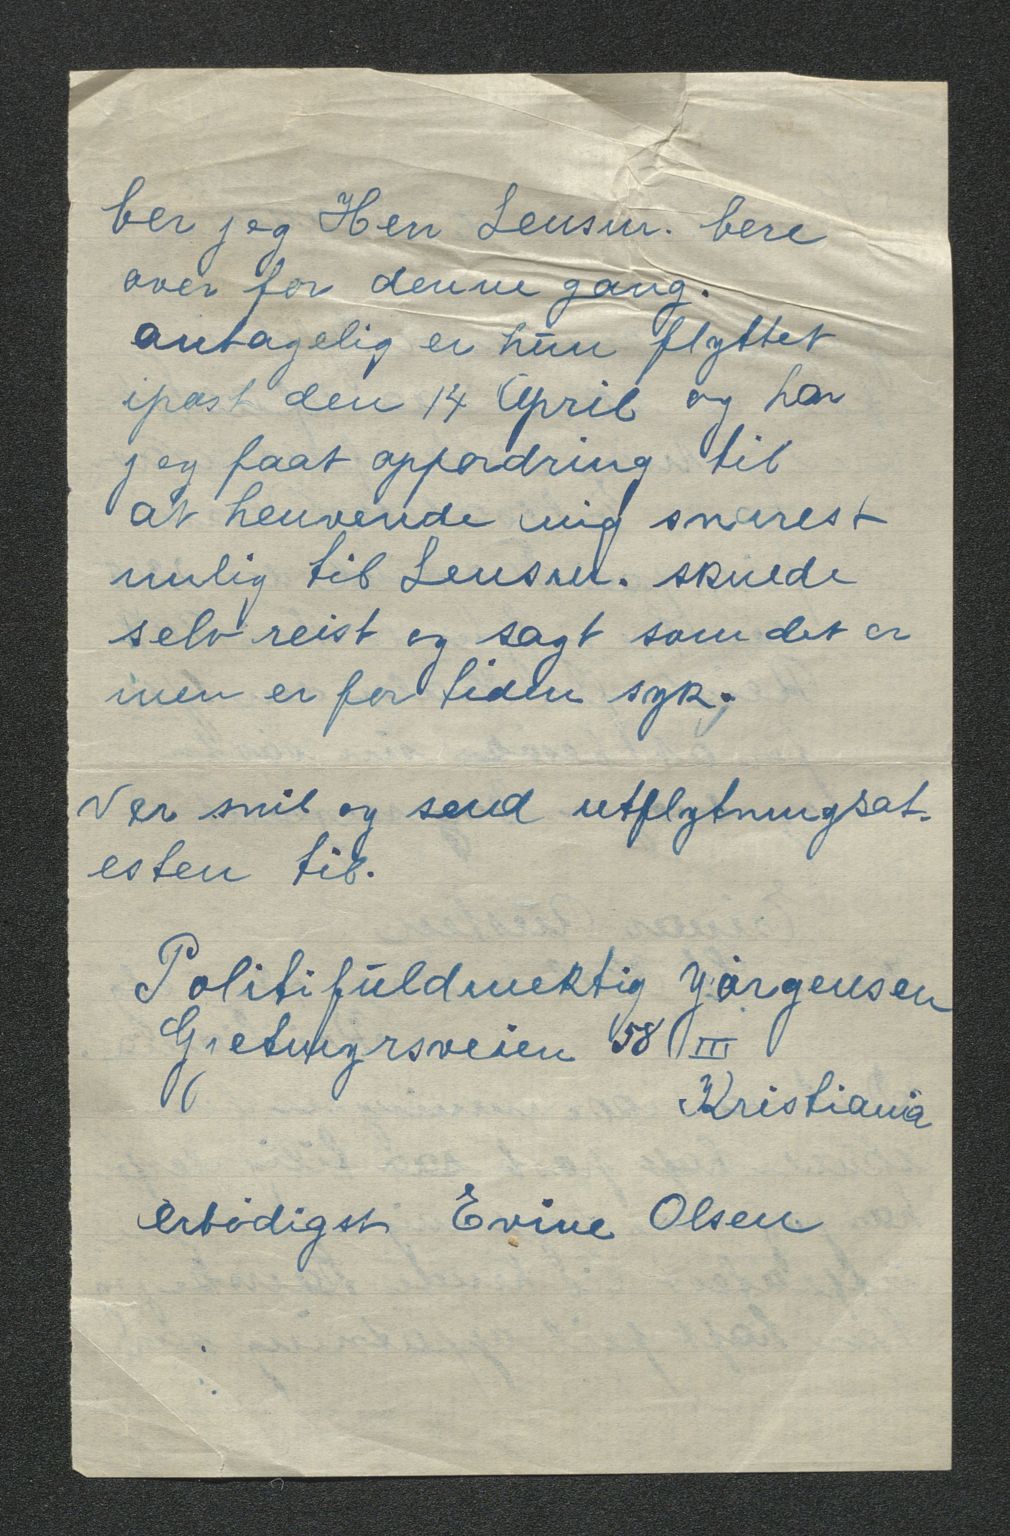 ber jeg Herr Lensm. bere
over for denne gang.
antagelig er hun flyttet
ipost den 14 April og har
jeg faat oppfordring til
at henvende mig snarest
mulig til Lensm. skulde
selv reist og sagt som det er
men er for tiden syk.
Vær snil og send utflytningsat-
esten til.
Politifuldmektig Yørgensen
Gjetmyrsveien 58 III
Kristiania
Erbødigst Evine Olsen